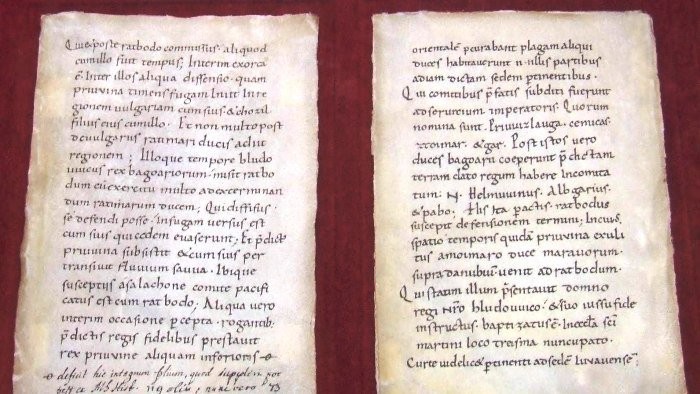 Qui & poste ratbodo commissus · aliquod
cum illo fuit tempus; Interim exorta
ē Inter illos aliqua dissensio · quam
priuuina timens fugam Iniit In re
gionem uulgariam cum suis & chozil
filius eius cum illo · Et non multo post
de uulgaris ratimari ducis adiit
regionem; Illoque tempore hludo
uuicus rex bagoariorum · misit ratbo
dum cū exercitu multo ad exterminan
dum ratimarum ducem; Qui diffisus ·
se defendi posse · in fugam uersus est
cum suis qui cedem euaserunt; Et p̄dict'
priuuina subsistit & cum suis per
transiuit fluuium sauua · Ibique
susceptus a salachone comite pacifi
catus est cum ratbodo; Aliqua uero
interim occasione p̄cepta · rogantib;
p̄dictis regis fidelibus prestauit
rex priuuine aliquam inferioris
deficit hic integrum folium, quod
orientalē pcurabant plagam aliqui
duces habitauerunt in illis partibus
ad iam dictam sedem ptinentibus ·
Qui comitibus p̄fatis subditi fuerunt
ad seruitium imperatoris · Quorum
nomina sunt · Priuuizlauga · cemicas ·
ztoimar · & gar · Post istos uero
duces bagoarii coeperunt p̄dictam
terram dato regum habere In comita
tum · N · Helmuuinus · Albgarius ·
& pabo · His ita pactis · ratbodus
suscepit defensionem termini; In cuius
spatio temporis quidā priuuina exuli
tus a moimaro duce marauorum ·
supra danubium uenit ad ratbodum ·
Qui statim illum p̄sentauit domno
regi nr̄o hludouuico · & suo iussu fide
instructus · baptizatus ē · In eccla sc̄i
martini loco treisma nuncupato ·
Curte uidelic& ptinenti ad sedem Iuuauensē;